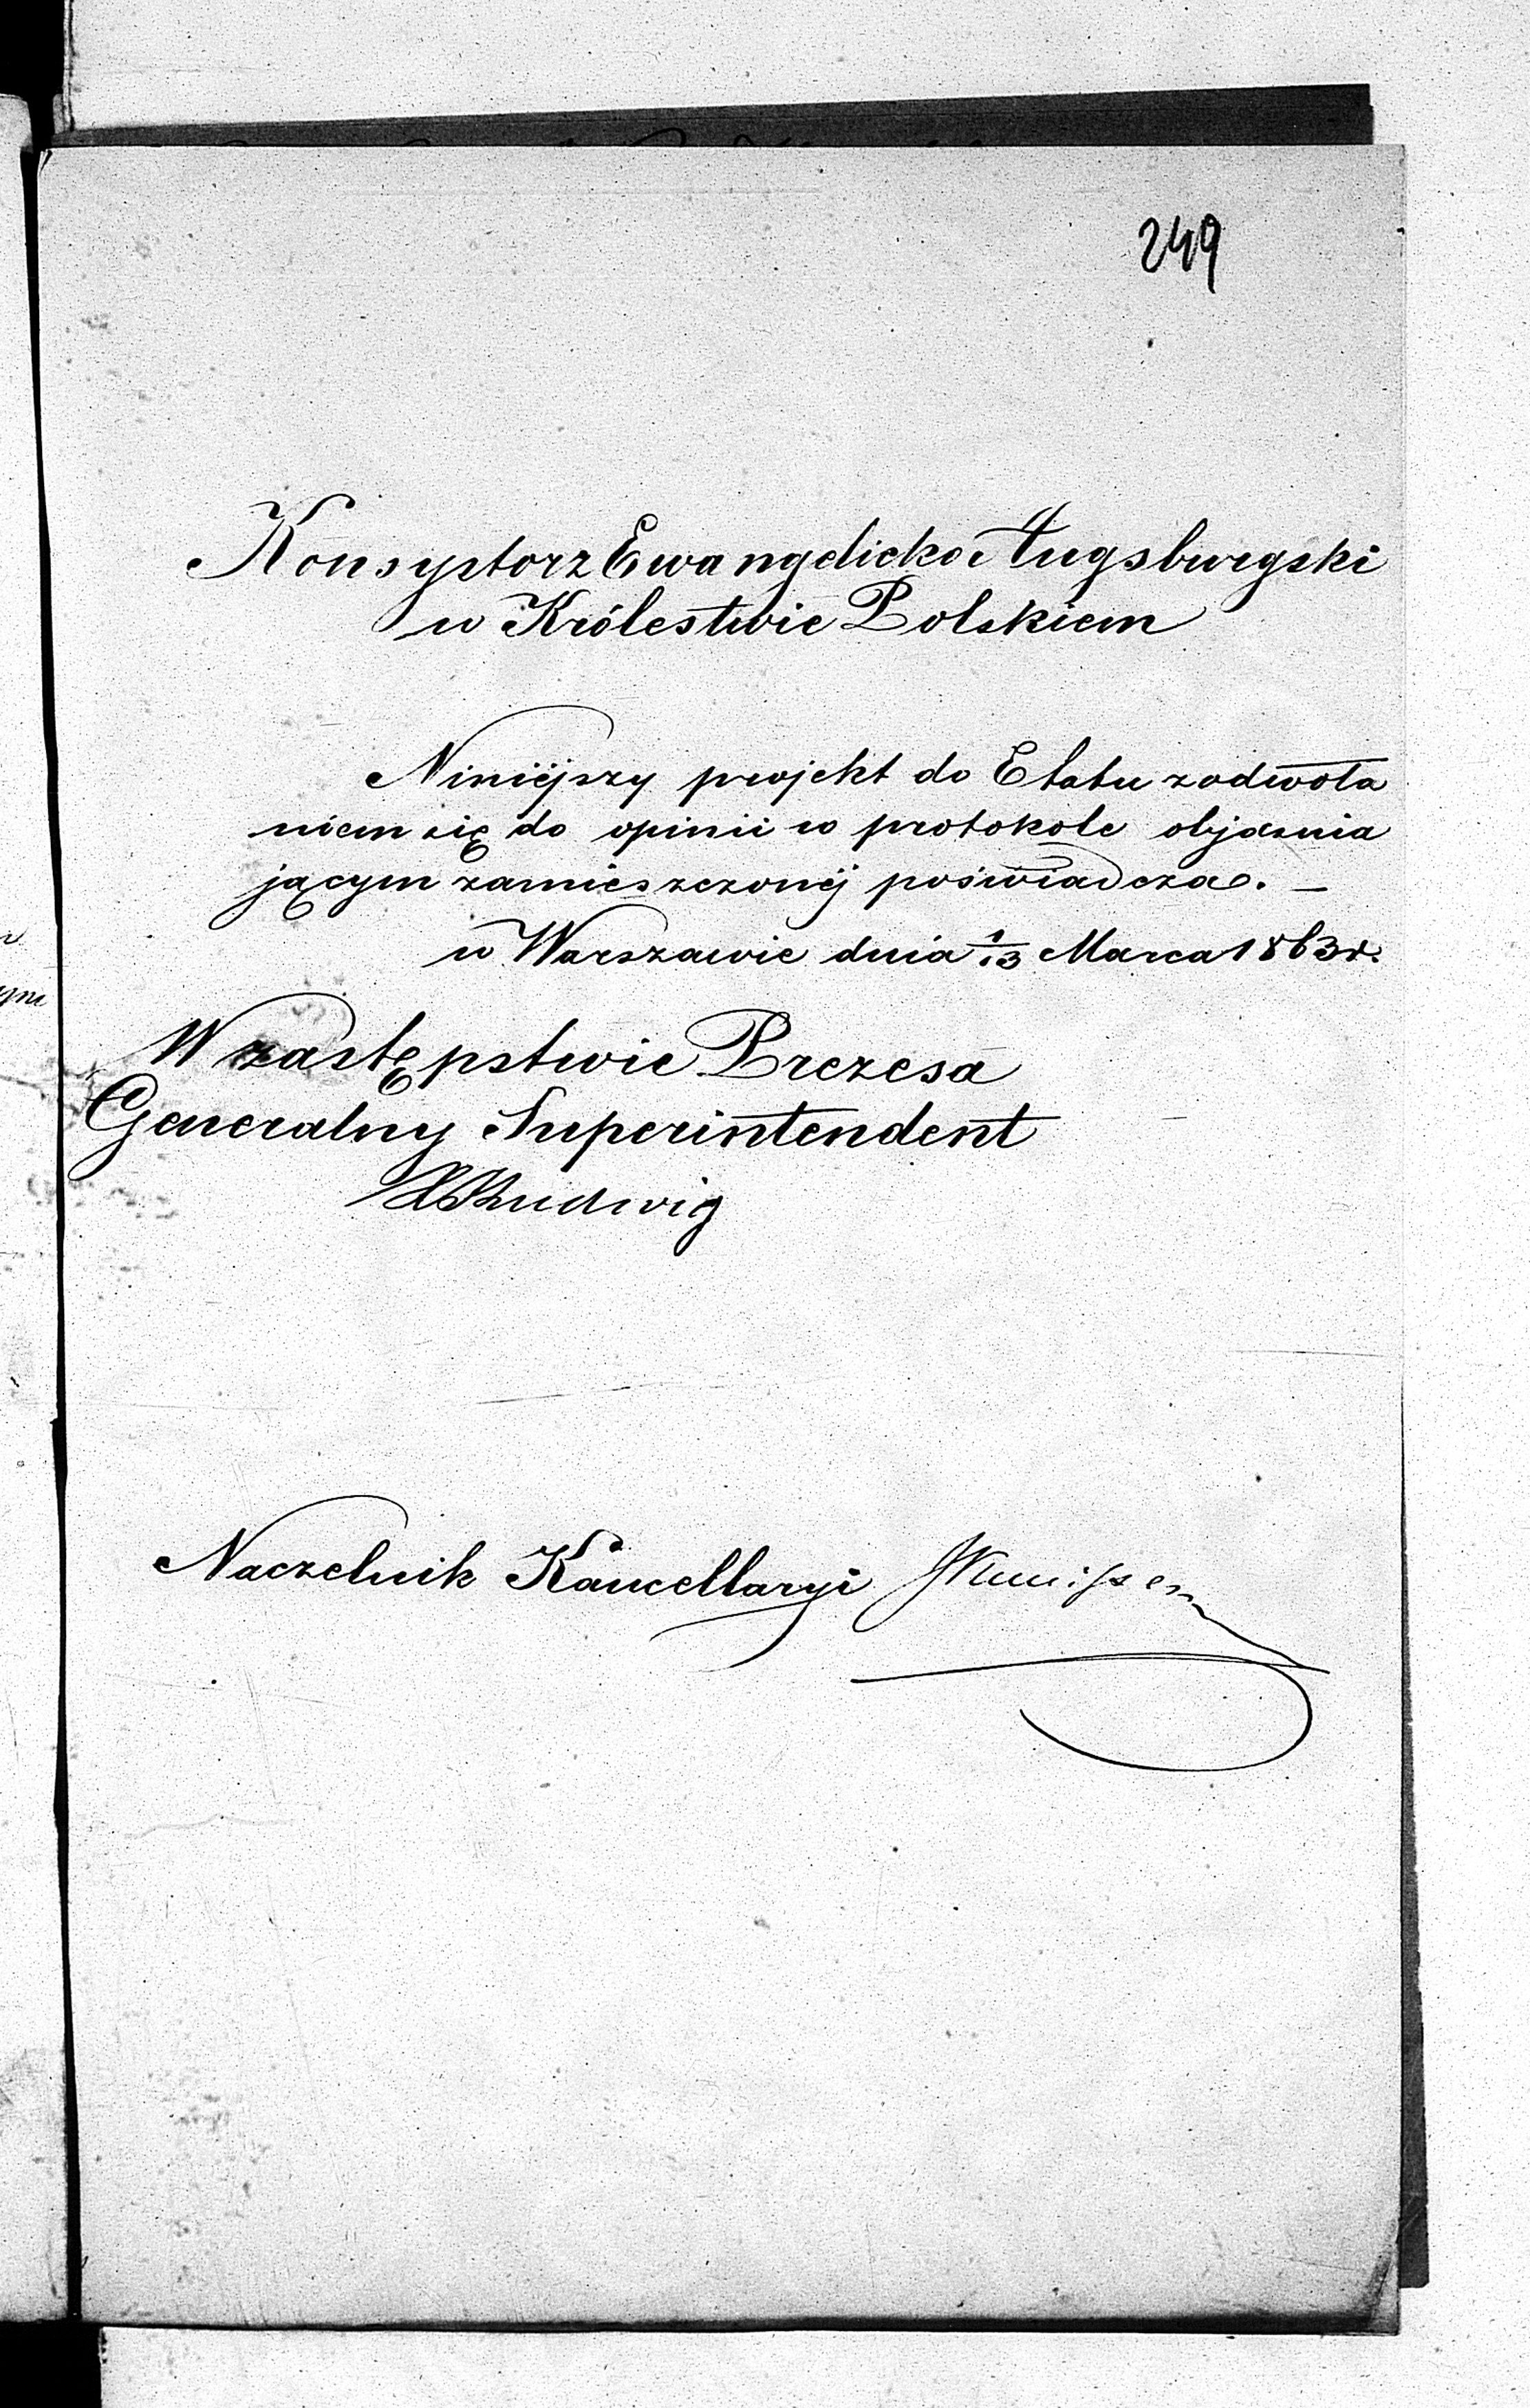 249
Konsystorz Ewangelicko Augsburgski
w Królestwie Polskiem
Niniéjszy projekt do Etatu z odwoła
niem się do opinii w protokole objasnia
jącym zamieszczonéj poświadcza. —
w Warszawie dnia 1/13 Marca 1863 r.
W zastępstwie Prezesa
Generalny Superintendent
Ludwig
Naczelnik Kancellaryi